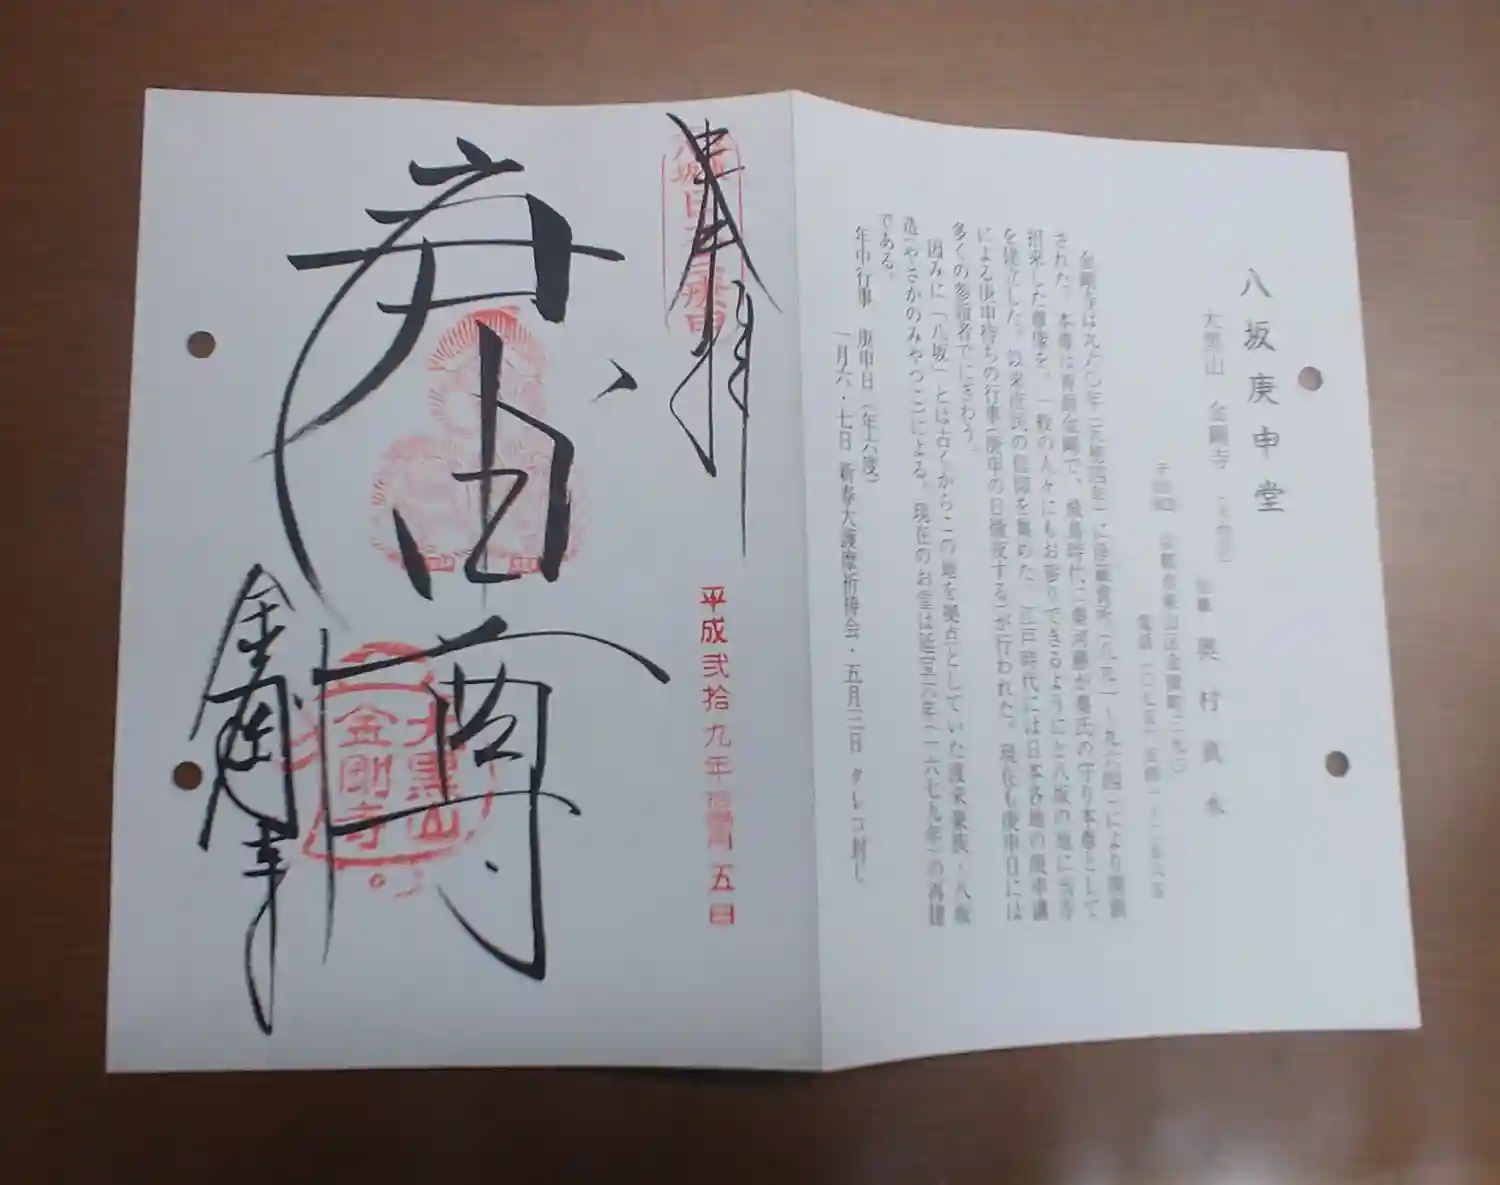 八坂庚申堂
大黒山 金剛寺
奥村
金剛寺は九六〇年
された。本尊は青面金剛で、飛鳥時代に秦河勝が秦氏の守り本尊として
招来した尊像を、一般の人々にもお参りできるようにと八坂の地に当寺
を建立した。以来庶民の信仰を集めた。江戸時代には日本各地の庚申講
による庚申待ちの行事(庚申の日徹夜する)が行われた。現在も庚申日には
多くの参詣者でにぎわう。
因みに「八坂」とは古くからこの地を拠点としていた渡来豪族・八坂
造(やさかのみやつこ)による。現在のお堂は延宝六年(一六七九年)の再建
である。
年中行事 庚申日(年六度)
一月六・七日 新春大護摩祈祷会・五月三日 タレコ封じ
奉拝
平成弐拾九年拾壱月五日
庚申尊
大黒山
金剛寺
金剛寺